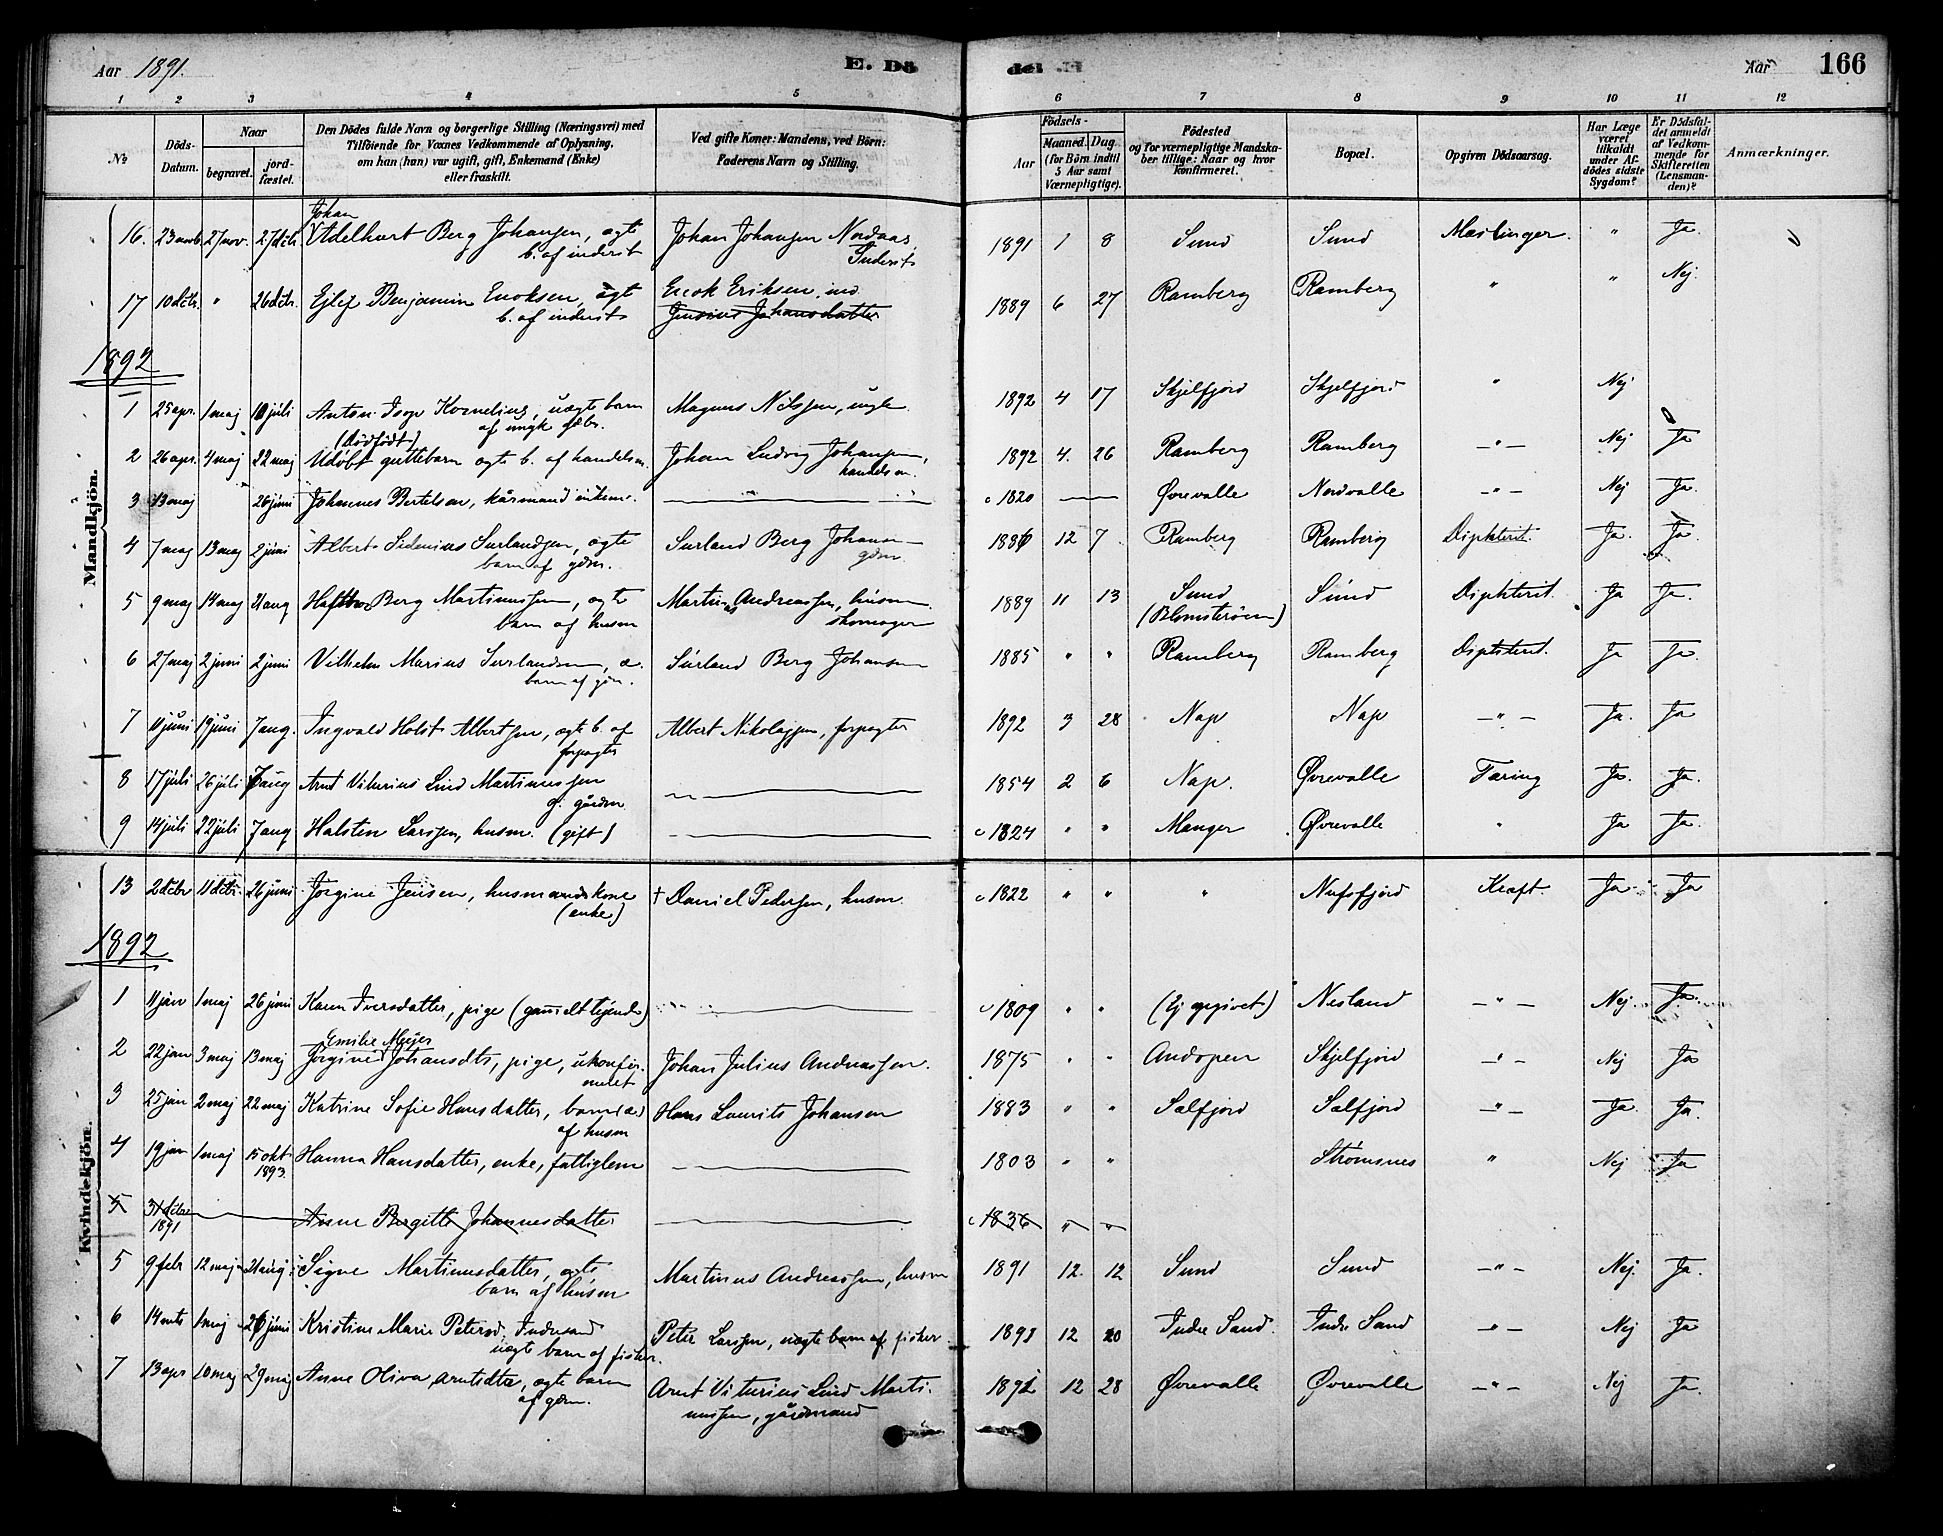 Aar 1891. E. Dö del .E Aar 166
1 2 3 4 5 6 7 8 9 10 11 12
No
Döds-Datum.
Naar
begravet.
jord-fæstet.
Den Dödes fulde Navn og borgerlige Stilling (Næringsvei) med
Tilföiende for Voxnes Vedkommende af Oplysning,
om han (hun) var ugift, gift, Enkemand (Enke)
eller fraskilt.
Ved gifte Koner: Mandens, ved Börn:
Faderens Navn og Stilling.
Födsels-
Aar
Maaned. Dag.
(for Börn indtil
5 Aar samt
Værnepligtige).
Födested
og for værnepligtige Mandska-
ber tillige: Naar og hvor
konfirmeret.
Bopæl.
Opgiven Dödsaarsag.
Har Læge
været
tilkaldt
under Af-
dödes sidste
Sygdom?
Er Dödsfal-
det anmeldt
af Vedkom-
mende for
Skifteretten
(Lensman-
den)?
Anmærkninger.
Mandkjön.
Johan
16. 23 novb 27 nov. 27 dcbr Adelhart Berg Johansen, ægte Johan Johansen Nordaas, 1891 1 8 Sund Sund Mæslinger. " Ja
b. af inderst Inderst
17 10 dcbr. " 26 dcbr. Ejlef Benjamin Enoksen, ægt Enok Eriksen, ind 1889 6 27 Ramberg Ramberg " " Nej
b. af inderst Johansdatter
1892
1 25 apr. 1 maj 10 juli Anton Kornelius, uægte barn Magnus Nilssen, ungk. 1892 4 17 Skjelfjord Skjelfjord " Nej
af ungk
(Dødfødt)
2 26 apr. 4 maj 22 maj Udøbt guttebarn ægte b. af handelsm. Johan Ludvig Johansen, 1892 4. 26 Ramberg Ramberg — " — Nej Ja
handelsm
3 13 maj 26 juni Johannes Bertelsen, kårmand enkem. c 1820 Øvrevalle Nordvalle — " — Nej Ja
4 7 maj 13 maj 2 juni Albert Sidenius Surlandsen, ægte Surland Berg Johansen 1886 12 7 Ramberg Ramberg Diphterit. Ja Ja
barn af gdm. gdm.
5 9 maj 14 maj 21 aug Berg Martinussen, ægte Martinus Andreassen, husm 1889 11 13 Sund Sund Diphterit. Ja Ja.
barn af husm skomager (Blomsterøen)
6 27 maj 2 juni 2 juni Vilhelm Marius Surlandsen, æ. Surland Berg Johansen 1885 " " Ramberg Ramberg Diphterit. Ja Ja.
barn af gdm.
7 11 juni 19 juni 7 aug. Ingvald Holst Albertsen, ægte b. af Albert Nikolajsen, forpagter 1892 3 28 Nap Nap — " — Ja. Ja
forpagter
8 17 juli 26 juli 7 aug Arnt Viturius Lind Martinussen 1854 2 6 Nap. Øvrevalle Tæring Ja. Ja.
g. gårdm
9 14 juli 22 juli 7 aug Halsten Larssen, husm. (gift) c 1824 " " Manger Øvrevalle " Ja Ja.
Kvindekjön.
13 2 dcbr 11 dcbr. 26 juni Jørgine Jensen, husmandskone † Daniel Pedersen, husm. c 1822 " " " Nufsfjord Kræft. Ja Ja
(enke)
1892
1 11 jan 1 maj 26 juni Karen Iversdatter, pige (gammelt tjende) c 1809 " " (Ej opgivet) Nesland — " — Nej. Ja.
Emilie Meyer
2 22 jan 3 maj 13 maj Jørgine Johansdtr, pige, ukonfir- Johan Julius Andreassen. 1875 " " Andopen Skjelfjord — " — Nej Ja
meret
3 25 jan 2 maj 22 maj Katrine Sofie Hansdatter, barn (æ) Hans Laurits Johansen 1883 " " Selfjord Selfjord — " — Ja. Ja.
af husm
4 19 jan 1 maj 15 okt Hanna Hansdatter, enke, fattiglem 1803 " " Strømsnes " Nej Ja
1893.
5 31 dcbr Anne Birgitte Johannesdatter c 1836 " "
1891
5 9 febr 12 maj 21 aug Signe Martinusdatter, ægte Martinus Andreassen, husm 1891 12. 12 Sund Sund — " — Nej. Ja.
barn af husm
6 14 mts 1 maj 26 juni Kristine Marie Petersd. Indresand Peter Larssen, uægte barn af fisker 1891 12 20 Indre Sand. Indre Sand — " — Nej Ja
uægt barn af fisker.
7 13 apr 10 maj 29 maj Anne Oliva Arntsdtr, ægte barn Arnt Viturius Lind Marti- 1891 12 28 Øvrevalle Øvrevalle — " — Nej Ja.
af gdm. nussen, gårdmand